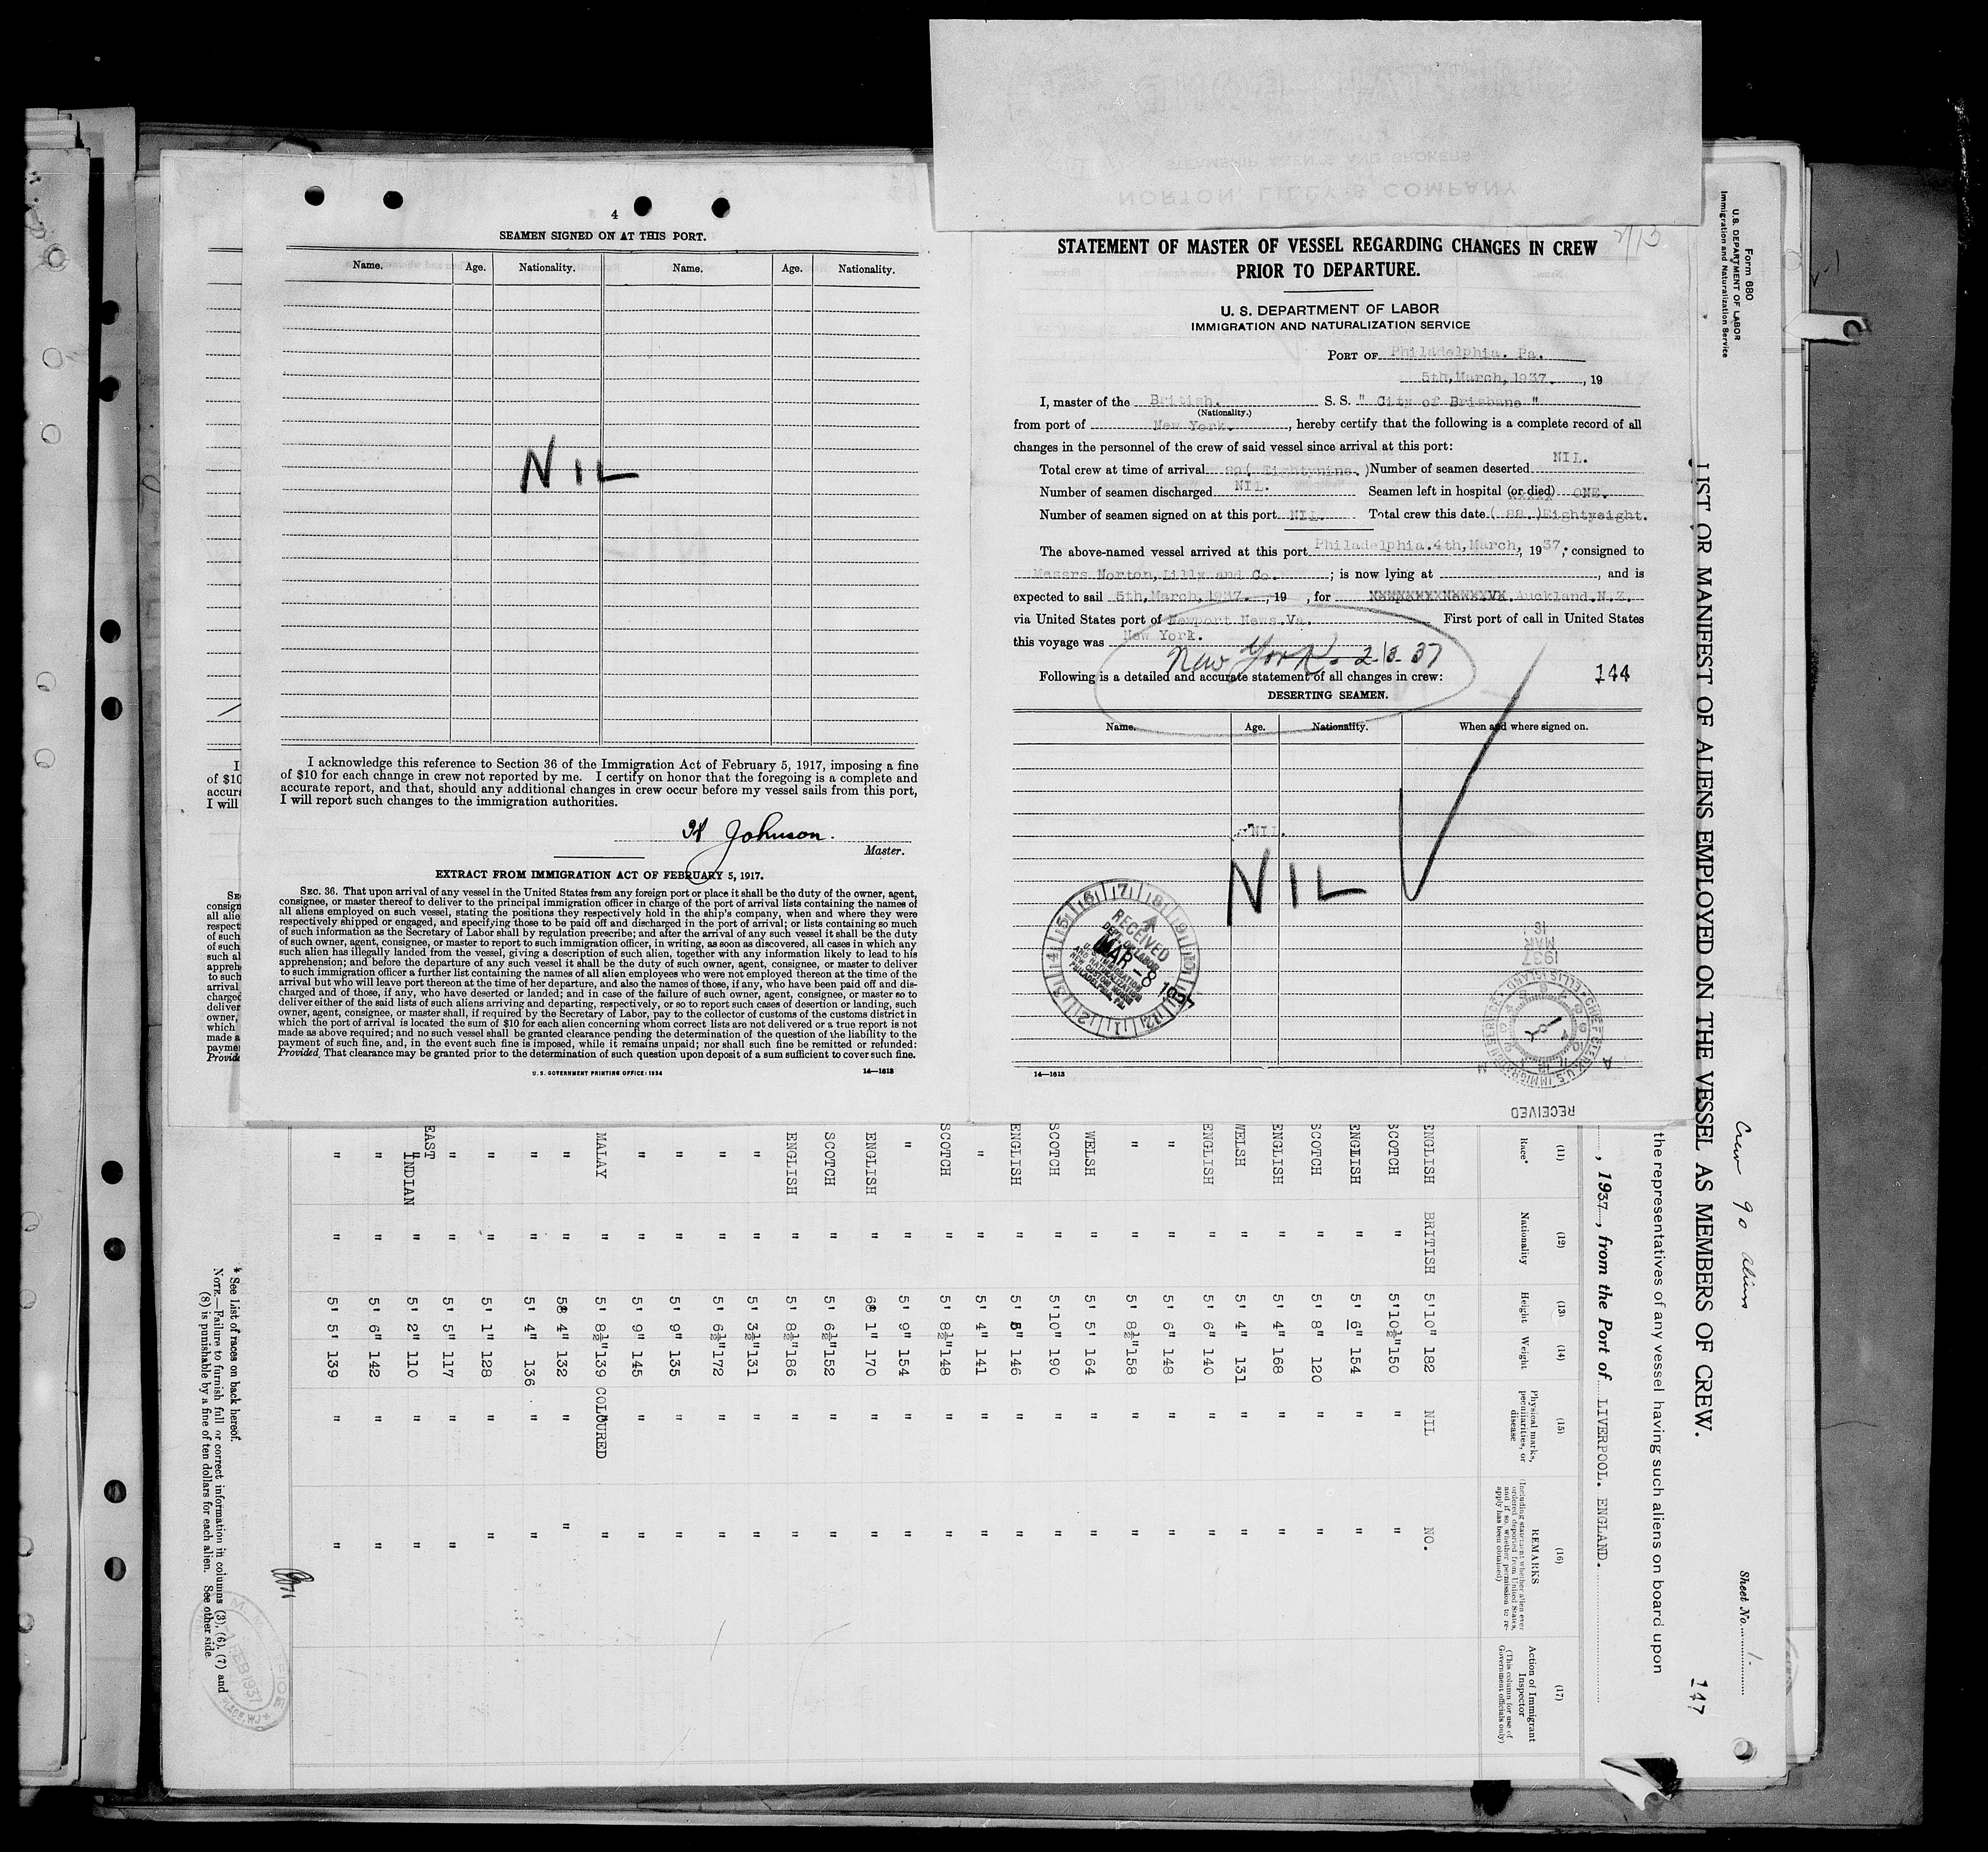 4
SEAMEN SIGNED ON AT THIS PORT.
Name. Age. Nationality. Name. Age. Nationality.
NIL
I acknowledge this reference to Section 36 of the Immigration Act of February 5, 1917, imposing a fine
of $10 for each change in crew not reported by me. I certify on honor that the foregoing is a complete and
accurate report, and that, should any additional changes in crew occur before my vessel sails from this port,
I will report such changes to the immigration authorities.
H Johnson.
Master.
EXTRACT FROM IMMIGRATION ACT OF FEBRUARY 5, 1917.
SEC. 36. That upon arrival of any vessel in the United States from any foreign port or place it shall be the duty of the owner, agent,
consignee, or master thereof to deliver to the principal immigration officer in charge of the port of arrival lists containing the names of
all aliens employed on such vessel, stating the positions they respectively hold in the ship's company, when and where they were
respectively shipped or engaged, and specifying those to be paid off and discharged in the port of arrival; or lists containing so much
of such information as the Secretary of Labor shall by regulation prescribe; and after the arrival of any such vessel it shall be the duty
of such owner, agent, consignee, or master to report to such immigration officer, in writing, as soon as discovered, all cases in which any
such alien has illegally landed from the vessel, giving a description of such alien, together with any information likely to lead to his
apprehension; and before the departure of any such vessel it shall be the duty of such owner, agent, consignee, or master to deliver
to such immigration officer a further list containing the names of all alien employees who were not employed thereon at the time of the
arrival but who will leave port thereon at the time of her departure, and also the names of those, if any, who have been paid off and dis-
charged and of those, if any, who have deserted or landed; and in case of the failure of such owner, agent, consignee, or master so to
deliver either of the said lists of such aliens arriving and departing, respectively, or so to report such cases of desertion or landing, such
owner, agent, consignee, or master shall, if required by the Secretary of Labor, pay to the collector of customs of the customs district in
which the port of arrival is located the sum of $10 for each alien concerning whom correct lists are not delivered or a true report is not
made as above required; and no such vessel shall be granted clearance pending the determination of the question of the liability to the
payment of such fine, and, in the event such fine is imposed, while it remains unpaid; nor shall such fine be remitted or refunded:
Provided, That clearance may be granted prior to the determination of such question upon deposit of a sum sufficient to cover such fine.
U. S. GOVERNMENT PRINTING OFFICE: 1934 14—1613
NORTON, LILLY & COMPANY
STEAMSHIP AGENTS AND BROKERS
STATEMENT OF MASTER OF VESSEL REGARDING CHANGES IN CREW
PRIOR TO DEPARTURE.
U. S. DEPARTMENT OF LABOR
IMMIGRATION AND NATURALIZATION SERVICE
PORT OF Philadelphia. Pa.
5th, March, 1937. , 19
I, master of the British. S. S. " City of Brisbane "
(Nationality.)
from port of New York. , hereby certify that the following is a complete record of all
changes in the personnel of the crew of said vessel since arrival at this port:
Total crew at time of arrival 89( Eightynine. ) Number of seamen deserted NIL.
Number of seamen discharged NIL. Seamen left in hospital (or died) ONE.
Number of seamen signed on at this port NIL. Total crew this date ( 88. )Eightyeight.
The above-named vessel arrived at this port Philadelphia. 4th, March, 1937, consigned to
Messrs Norton, Lilly and Co. ; is now lying at , and is
expected to sail 5th, March, 1937. , 19 , for Auckland. N. Z.
via United States port of Newport News. Va. First port of call in United States
this voyage was New York.
New York. 2-3-37
Following is a detailed and accurate statement of all changes in crew: 144
DESERTING SEAMEN.
Name. Age. Nationality. When and where signed on.
NIL.
NIL
RECEIVED
DEPT. OF LABOR
MAR -8 1937
PHILADELPHIA, PA.
14—1613
1937
MAR
16
CHIEF CLERK, U.S. IMMIGRATION SERVICE, ELLIS ISLAND
RECEIVED
Form 680
U. S. DEPARTMENT OF LABOR
Immigration and Naturalization Service
Crew 90 aliens
Sheet No. 1.
147
LIST OR MANIFEST OF ALIENS EMPLOYED ON THE VESSEL AS MEMBERS OF CREW.
the representatives of any vessel having such aliens on board upon
, 1937, from the Port of LIVERPOOL. ENGLAND.
(11) (12) (13) (14) (15) (16) (17)
Race* Nationality Height Weight Physical marks, peculiarities, or disease REMARKS (Including statement whether alien ever ordered deported from United States, and if so, whether permission to re-apply has been obtained) Action of Immigrant Inspector (This column for use of Government officials only)
ENGLISH BRITISH 5'10" 182 NIL NO.
SCOTCH " 5'10½" 150 " "
ENGLISH " 5' 6" 154 " "
SCOTCH " 5' 8" 120 " "
ENGLISH " 5' 4" 168 " "
WELSH " 5' 4" 131 " "
ENGLISH " 5' 6" 140 " "
" " 5' 6" 148 " "
" " 5' 8½" 158 " "
WELSH " 5' 5' 164 " "
SCOTCH " 5'10" 190 " "
ENGLISH " 5' 146 " "
" " 5' 4" 141 " "
SCOTCH " 5' 8½" 148 " "
" " 5' 9" 154 " "
ENGLISH " 6' 1" 170 " "
SCOTCH " 5' 6½" 152 " "
ENGLISH " 5' 8½" 186 " "
" " 5' 3½" 131 " "
" " 5' 6½" 172 " "
" " 5' 9" 135 " "
" " 5' 9" 145 " "
MALAY " 5' 8½" 139 COLOURED "
" " 5' 4" 132 " "
" " 5' 4" 136 " "
" " 5' 1" 128 " "
" " 5' 5" 117 " "
EAST INDIAN " 5' 2" 110 " "
" " 5' 6" 142 " "
" " 5' 5' 139 " "
* See List of races on back hereof.
NOTE.—Failure to furnish full or correct information in columns (3), (6), (7) and
(8) is punishable by a fine of ten dollars for each alien. See other side.
FEB 1937